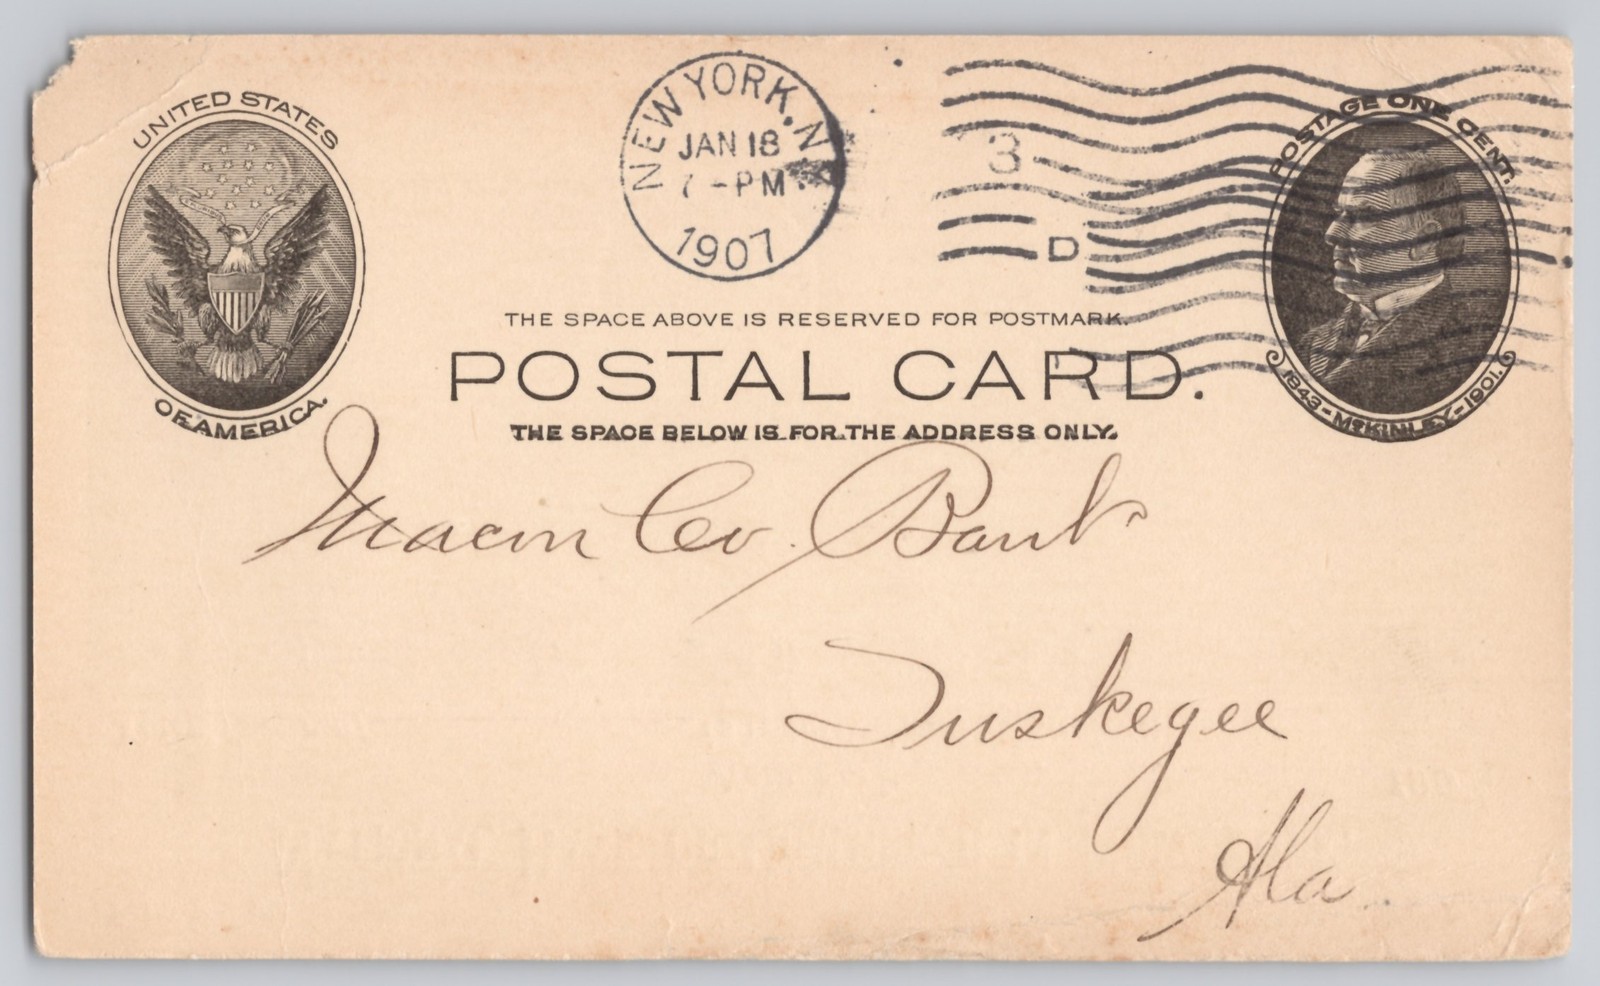 UNITED STATES
OF AMERICA.
NEW YORK, N.Y.
JAN 18
7-PM
1907
3
D
POSTAGE ONE CENT.
1843-McKINLEY-1901.
THE SPACE ABOVE IS RESERVED FOR POSTMARK.
POSTAL CARD.
THE SPACE BELOW IS FOR THE ADDRESS ONLY.
Macon Co. Bank
Tuskegee
Ala.